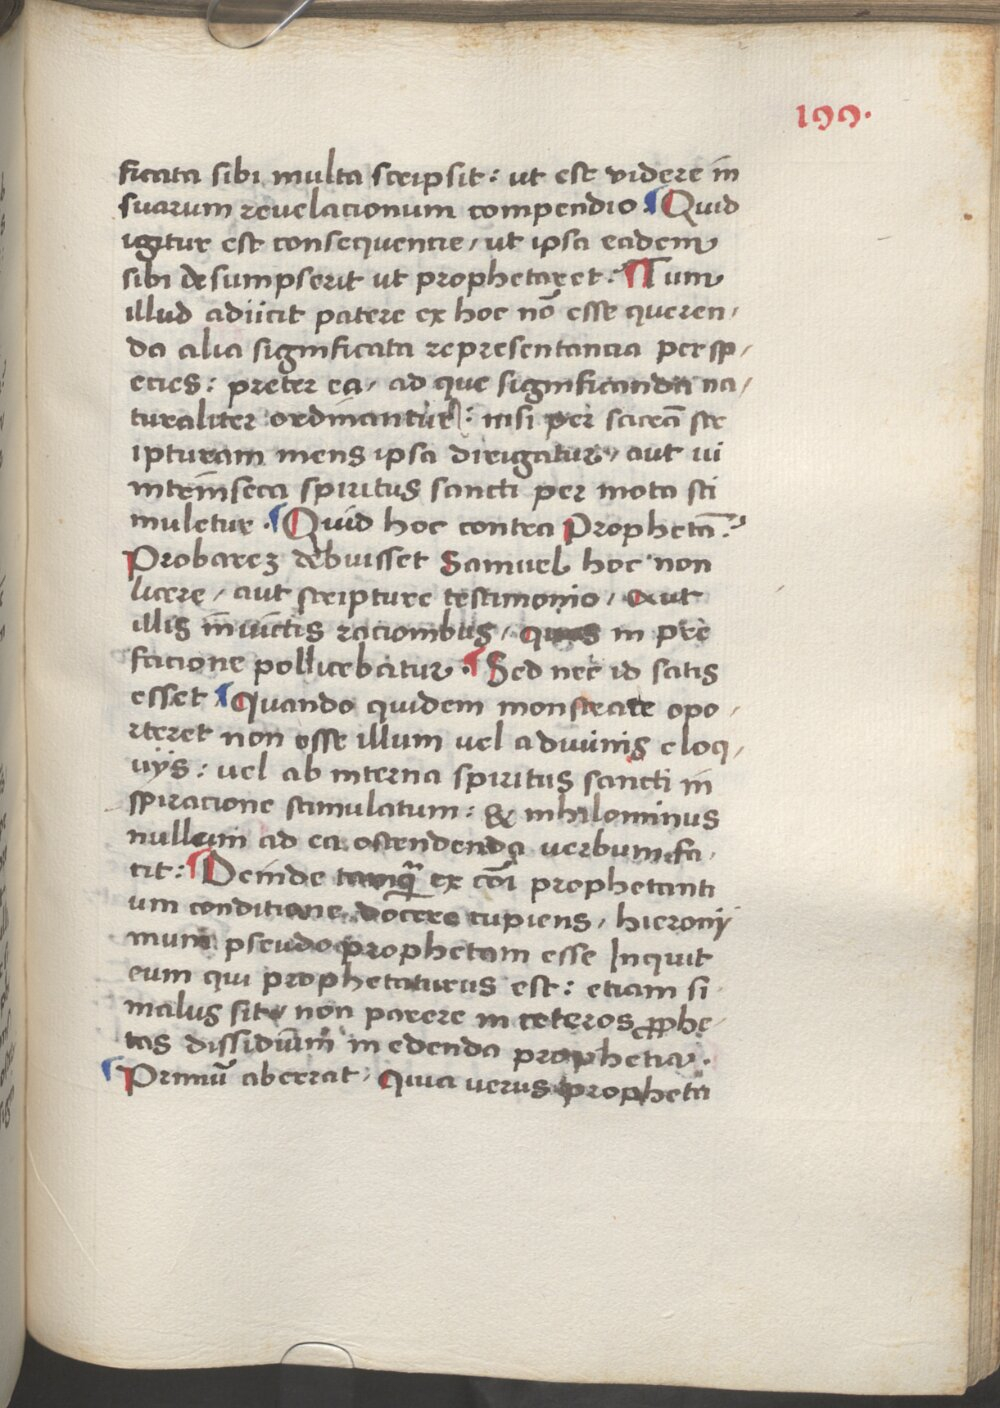 199.
ficata sibi multa scripsit: ut est videre in
suarum revelacionum compendio. Quid
igitur est consequentie, ut ipsa eadem
sibi desumpserit ut prophetaret: Tum
illud adiicit patere ex hoc nō esse queren,
da alia significata representancia per sp,
ecies: preter ea, ad que significanda na,
turaliter ordinantur: nisi per sacrā scr
ipturam mens ipsa dirigatur, aut ui
intrinseca spiritus sancti per mota sti
muletur. Quid hoc contra Prophetā?
Probareʒ debuisset Samuel hoc non
licere, aut scripture testimonio, aut
illis inuictis racionibus, quas in pre
facione pollicebatur. Sed nec id satis
esset Quando quidem monstrare opo,
rteret non esse illum vel a diuinis eloq,
uijs: vel ab interna spiritus sancti in
spiracione stimulatum: & nihilominus
nullum ad ea ostendenda verbum fa,
cit: Deinde tamq̄ ex cōi prophetanti
um conditione docere cupiens, hierony
mum pseudoprophetam esse Inquit
eum qui prophetaturus est: etiam si
malus sit, non parere in ceteros ꝓphe,
tas dissidium in edenda prophetia.
Primū aberrat, Quia verus propheta